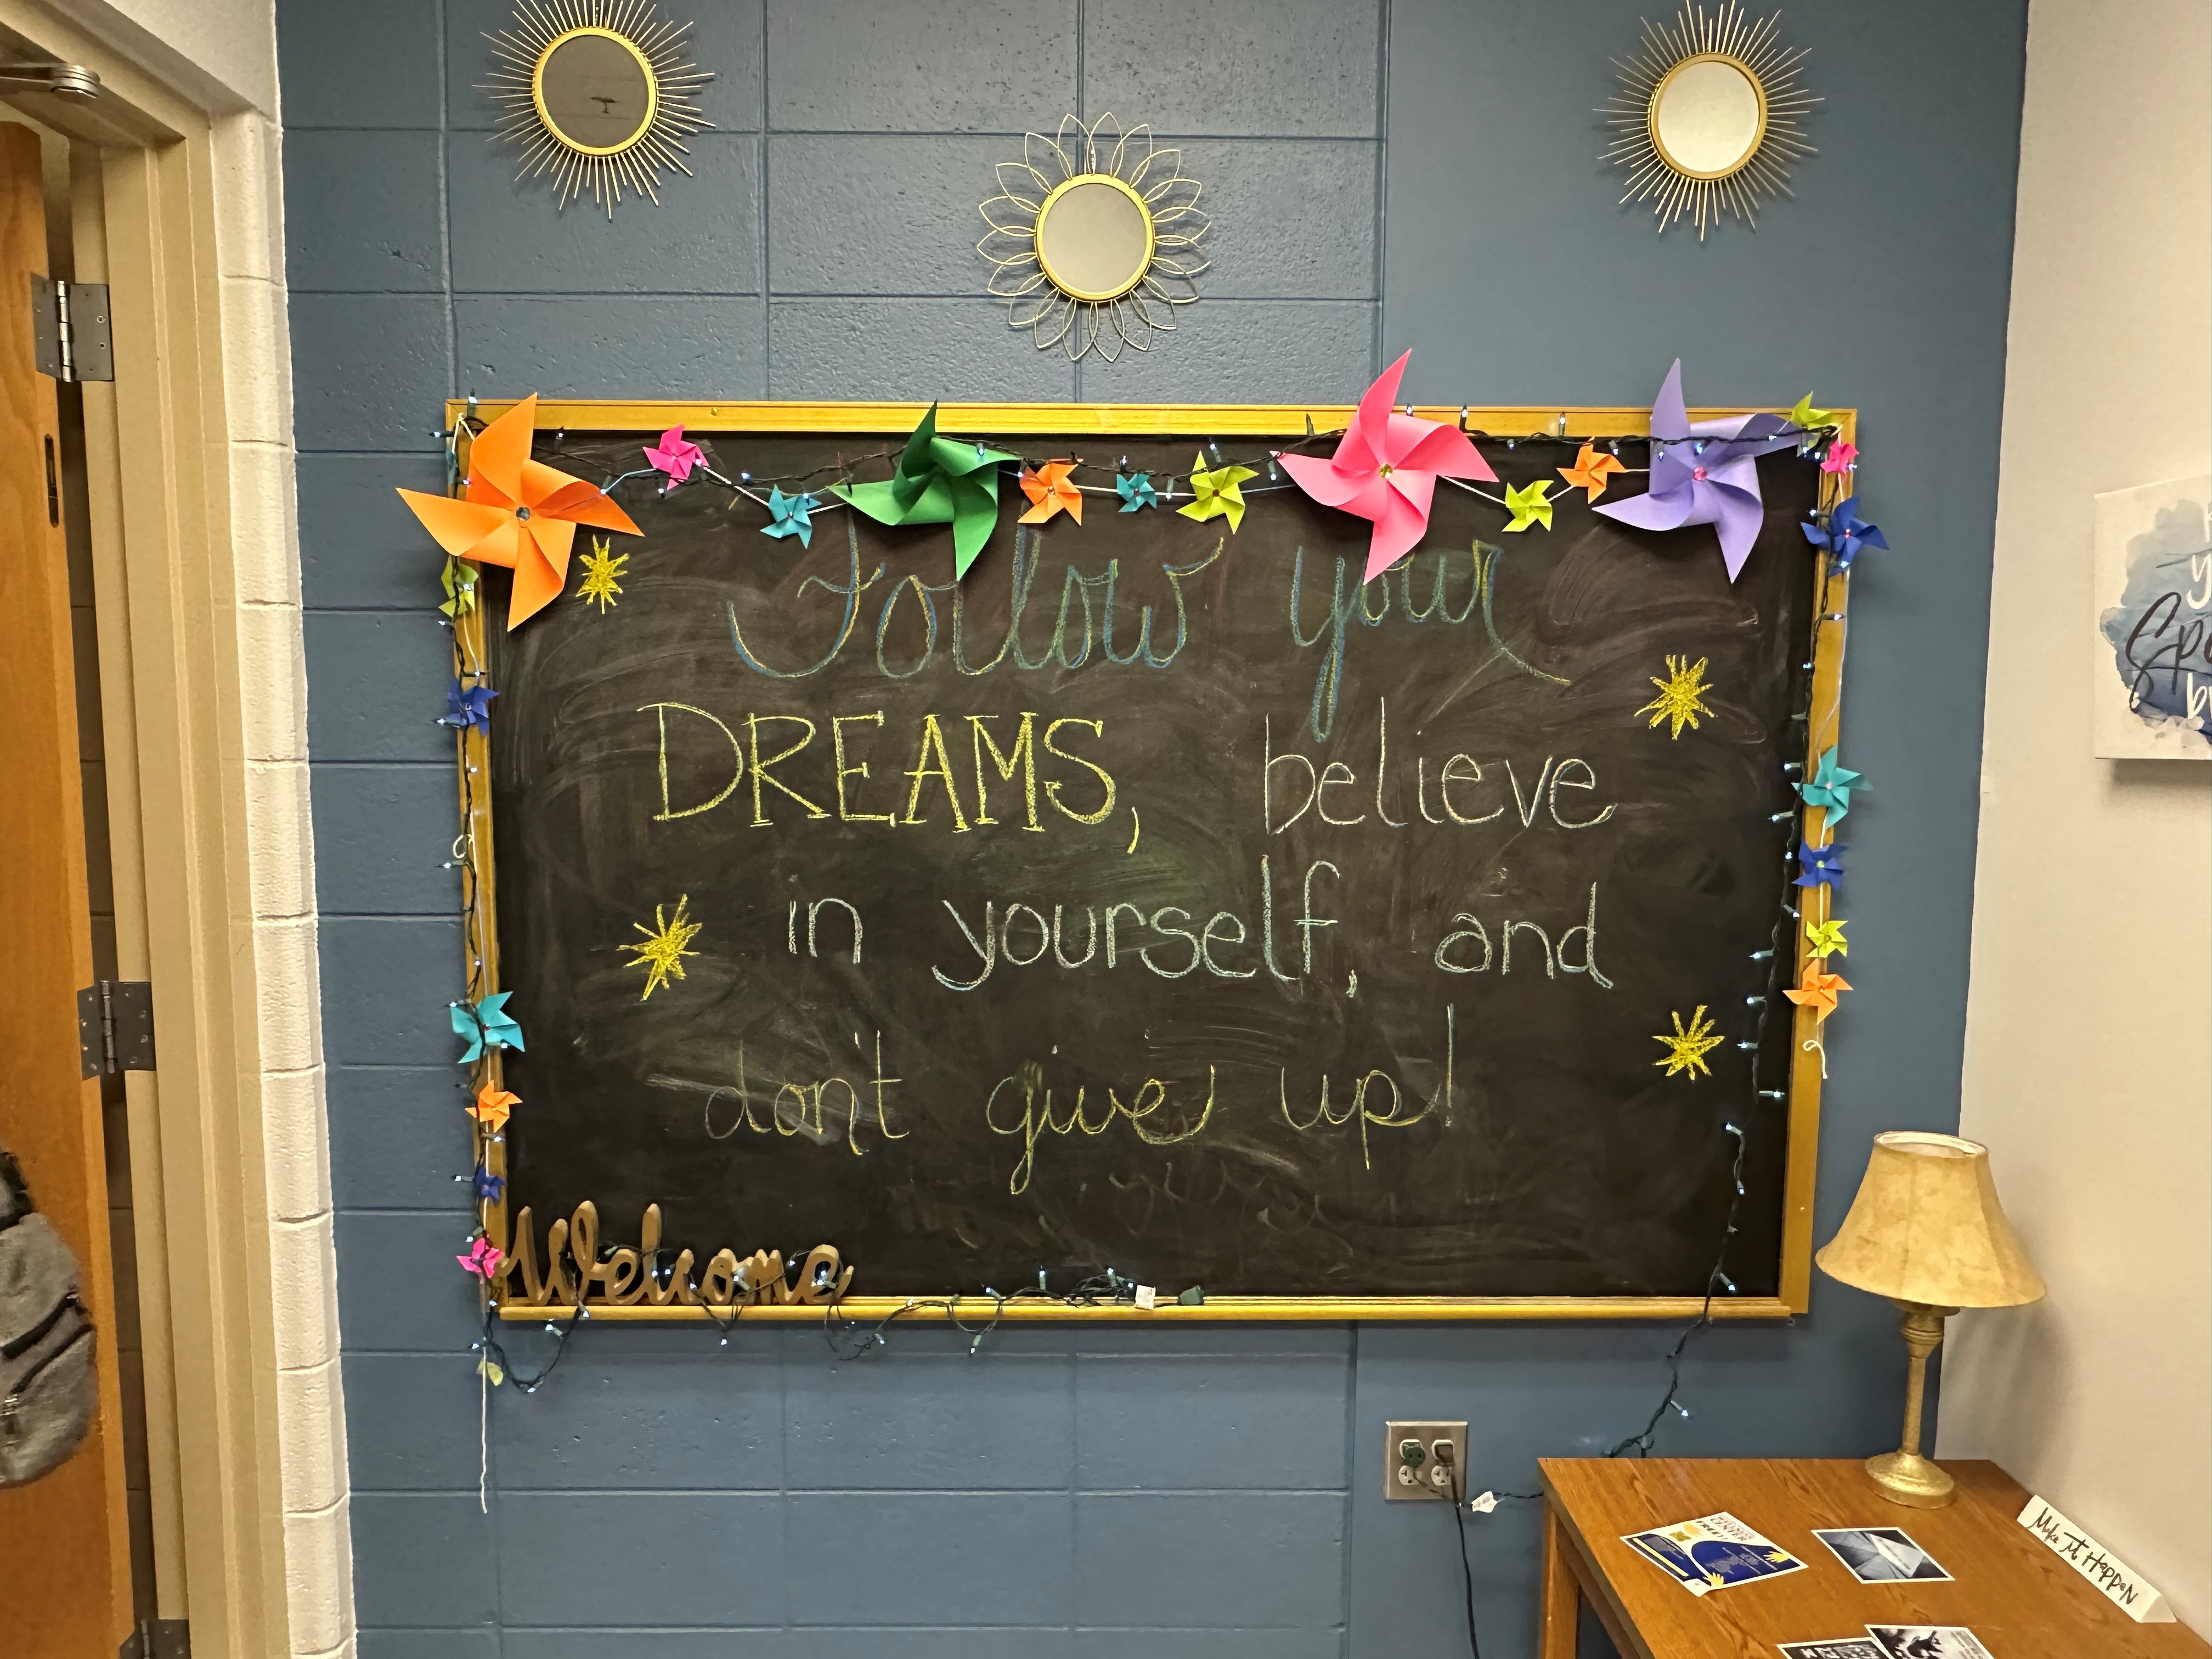 Follow your
DREAMS, believe
in yourself, and
don't give up!
Welcome
Make it Happen
CENTER
FREE!